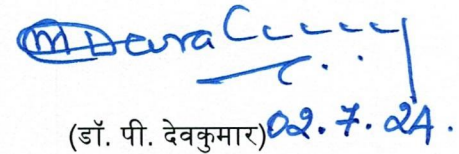 (डॉ. पी. देवकुमार) 02.7.24.